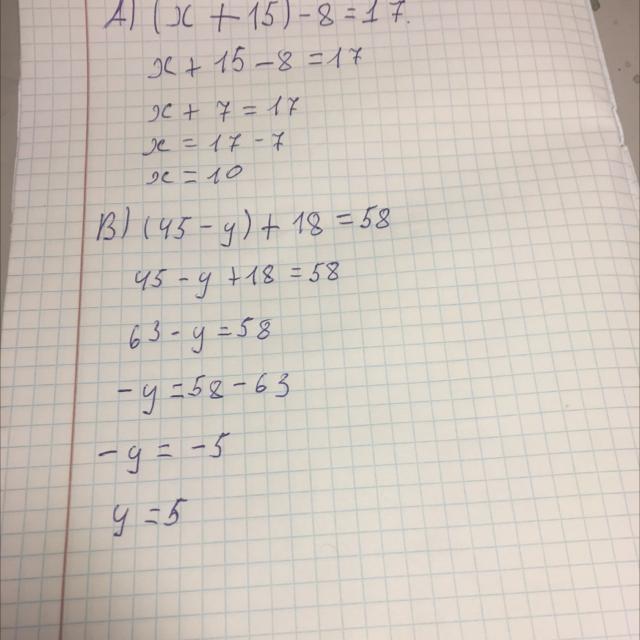 А) (x + 15) - 8 = 17.
x + 15 - 8 = 17
x + 7 = 17
x = 17 - 7
x = 10
В) (45 - y) + 18 = 58
45 - y + 18 = 58
63 - y = 58
- y = 58 - 63
- y = - 5
y = 5